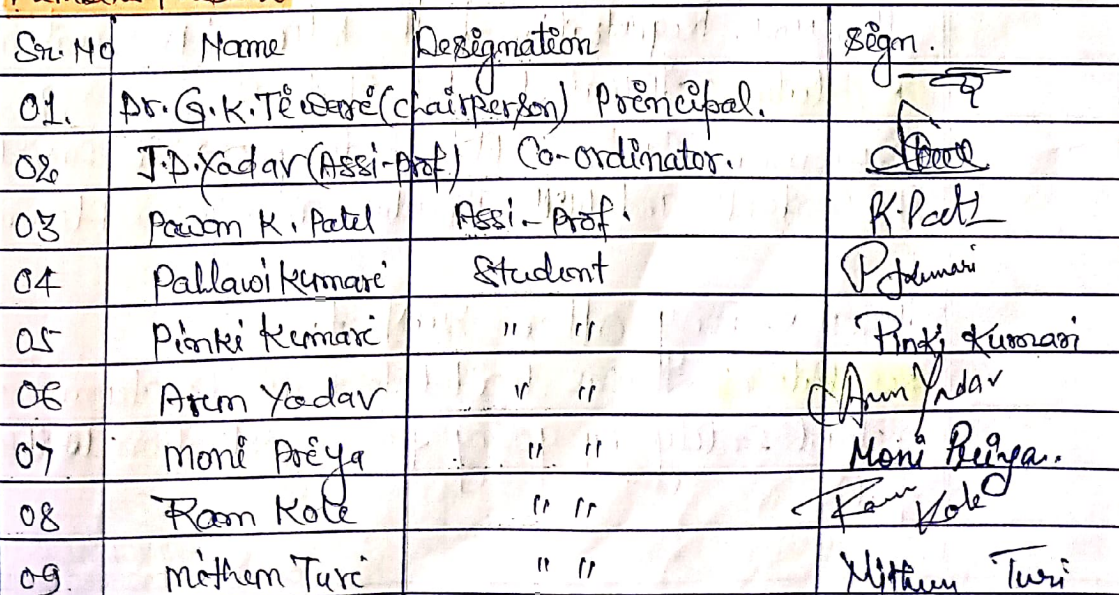 Sr. No Name Designation Sign.
01. Dr. G. K. Tiwari (chairperson) Principal.
02 J.D. Yadav (Assi-Prof.) Co-ordinator.
03 Pawan K. Patel Assi-Prof. K. Patel
04 Pallawi Kumari Student P Kumari
05 Pinki Kumari " " Pinki Kumari
06 Arun Yadav " " Arun Yadav
07 Moni Priya " " Moni Priya.
08 Ram Kole " " Ram Kole
09. Mithun Turi " " Mithun Turi